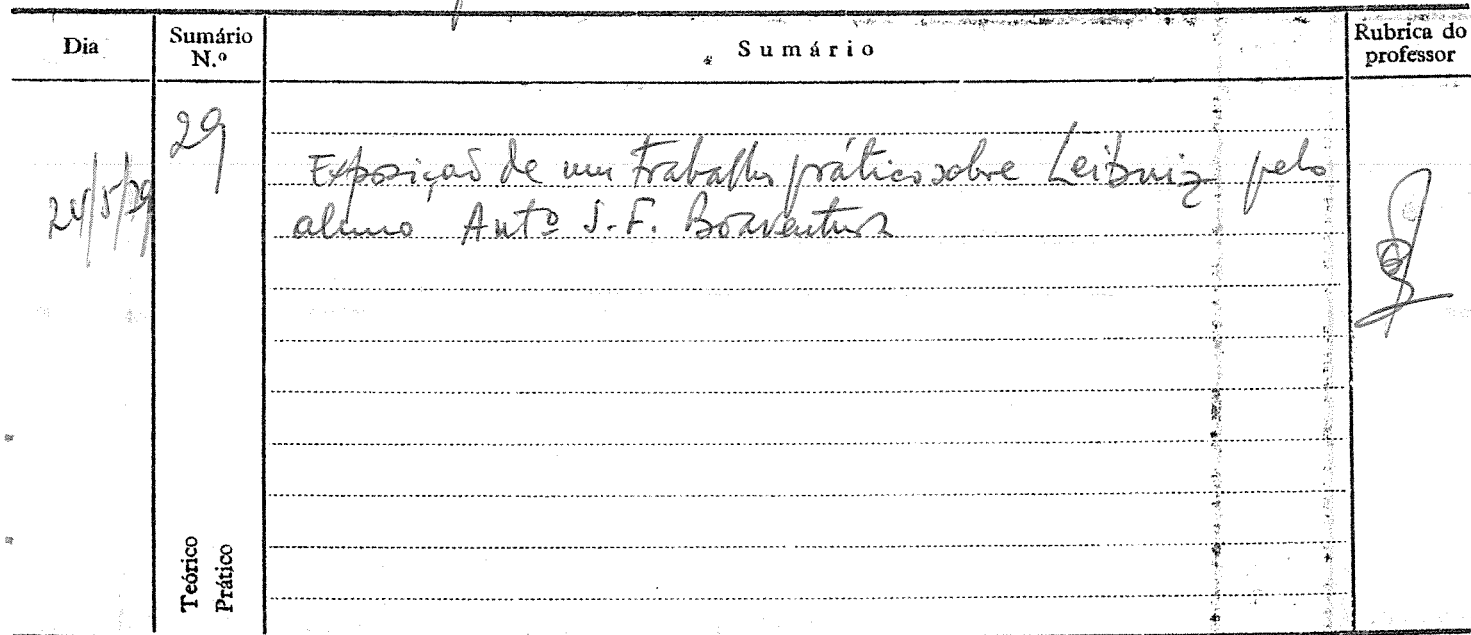 Dia
Sumário N.º
Sumário
Rubrica do professor
29
Exposição de um trabalho prático sobre Leibniz pelo
aluno Antº J.F. Boaventura
Teórico
Prático